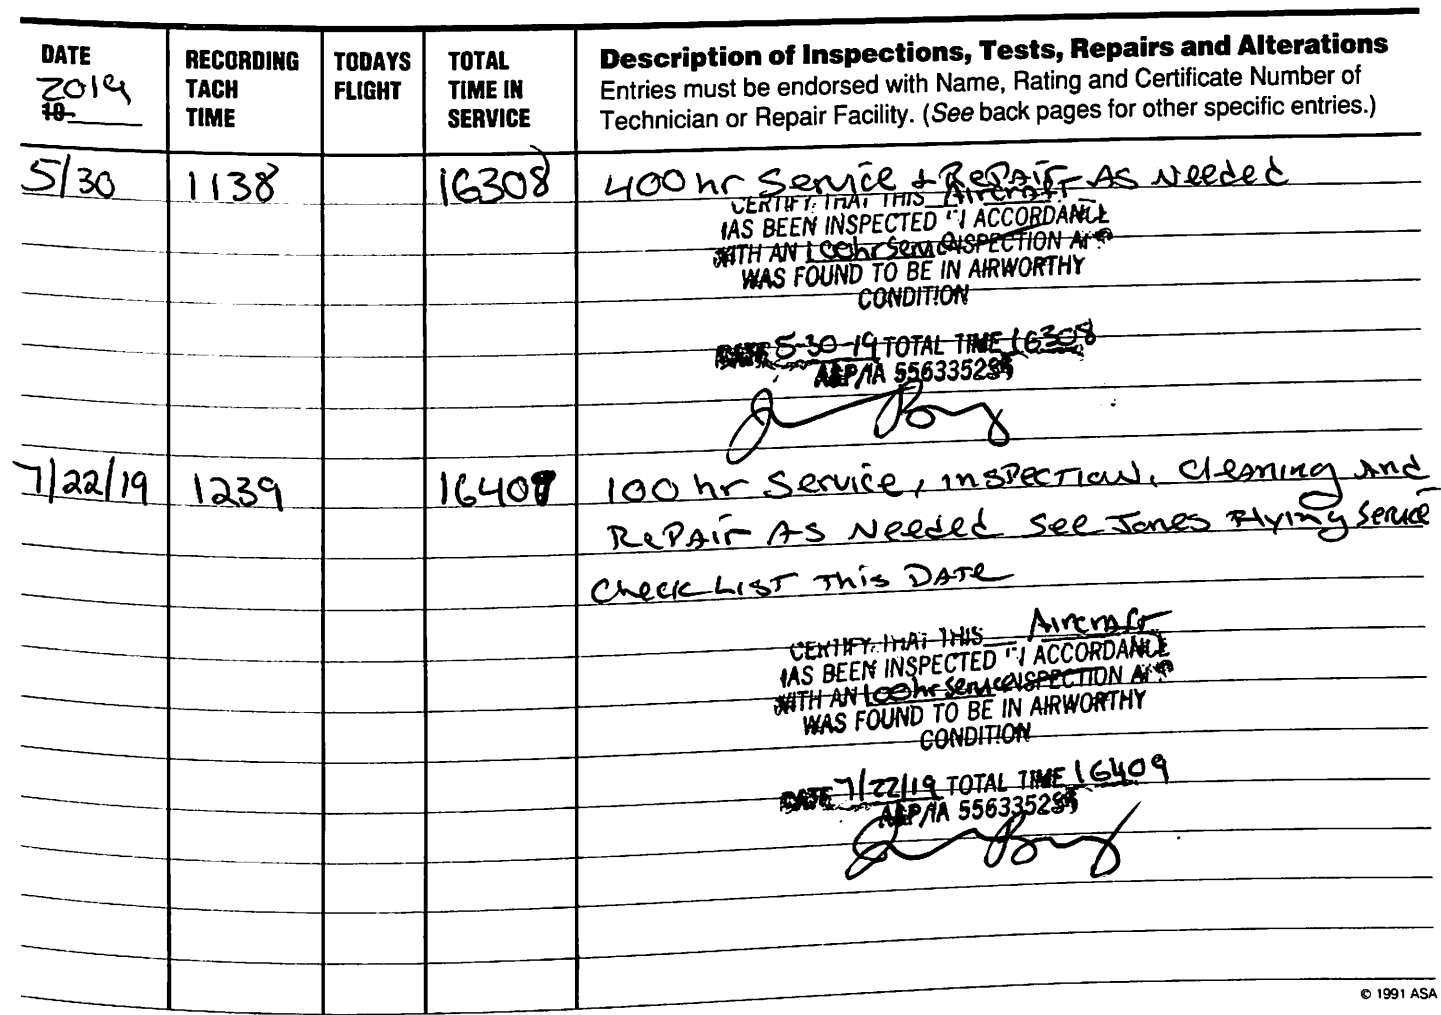 DATE
2019
19
RECORDING
TACH
TIME
TODAYS
FLIGHT
TOTAL
TIME IN
SERVICE
Description of Inspections, Tests, Repairs and Alterations
Entries must be endorsed with Name, Rating and Certificate Number of
Technician or Repair Facility. (See back pages for other specific entries.)
5/30 1138 16308 400 hr Service & RePAir AS Needed
CERTIFY THAT THIS Aircraft
HAS BEEN INSPECTED IN ACCORDANCE
WITH AN 100hr Service INSPECTION AND
WAS FOUND TO BE IN AIRWORTHY
CONDITION
DATE 5-30-19 TOTAL TIME 16308
A&P/IA
7/22/19 1239 16409 100 hr Service, inSPECTION, Cleaning And
RePAir AS Needed See Jones Flying Service
Check List This DATe
CERTIFY THAT THIS Aircraft
HAS BEEN INSPECTED IN ACCORDANCE
WITH AN 100hr Service INSPECTION AND
WAS FOUND TO BE IN AIRWORTHY
CONDITION
DATE 7/22/19 TOTAL TIME 16409
A&P/IA
© 1991 ASA